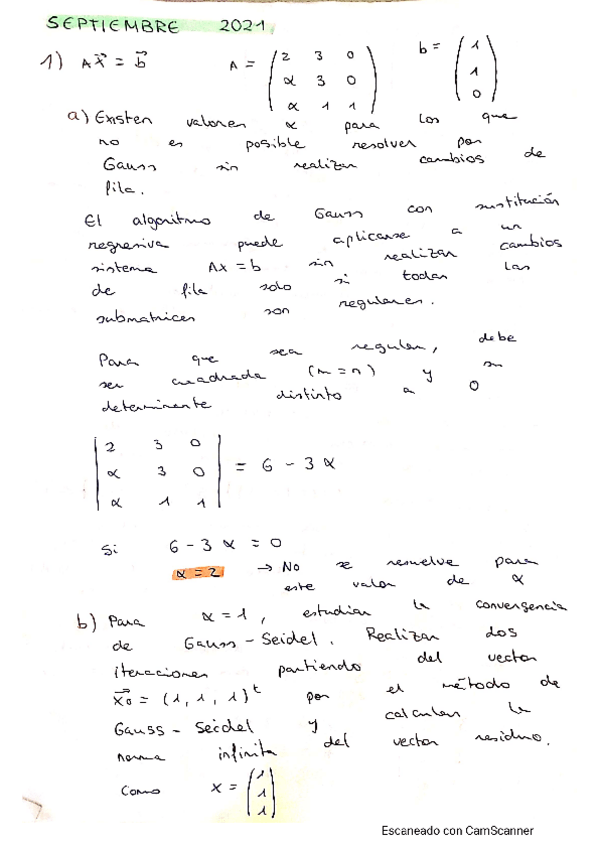 SEPTIEMBRE 2021
1) Ax⃗ = b⃗ A = (2 3 0
α 3 0
α 1 1) b = (1
1
0)
a) Existen valores α para los que
no es posible resolver por
Gauss sin realizar cambios de
fila.
El algoritmo de Gauss con sustitución
regresiva puede aplicarse a un
sistema Ax = b sin realizar cambios
de fila solo si todas las
submatrices son regulares.
Para que sea regular, debe
ser cuadrada (m = n) y su
determinente distinto a 0
|2 3 0|
|α 3 0| = 6 - 3α
|α 1 1|
Si 6 - 3α = 0
α = 2 → No se resuelve para
este valor de α
b) Para α = 1, estudiar la convergencia
de Gauss - Seidel. Realizar dos
iteraciones partiendo del vector
x⃗0 = (1, 1, 1)ᵗ por el método de
Gauss - Seidel y calcular la
norma infinita del vector residuo.
Como x = (1
1
1)
Escaneado con CamScanner